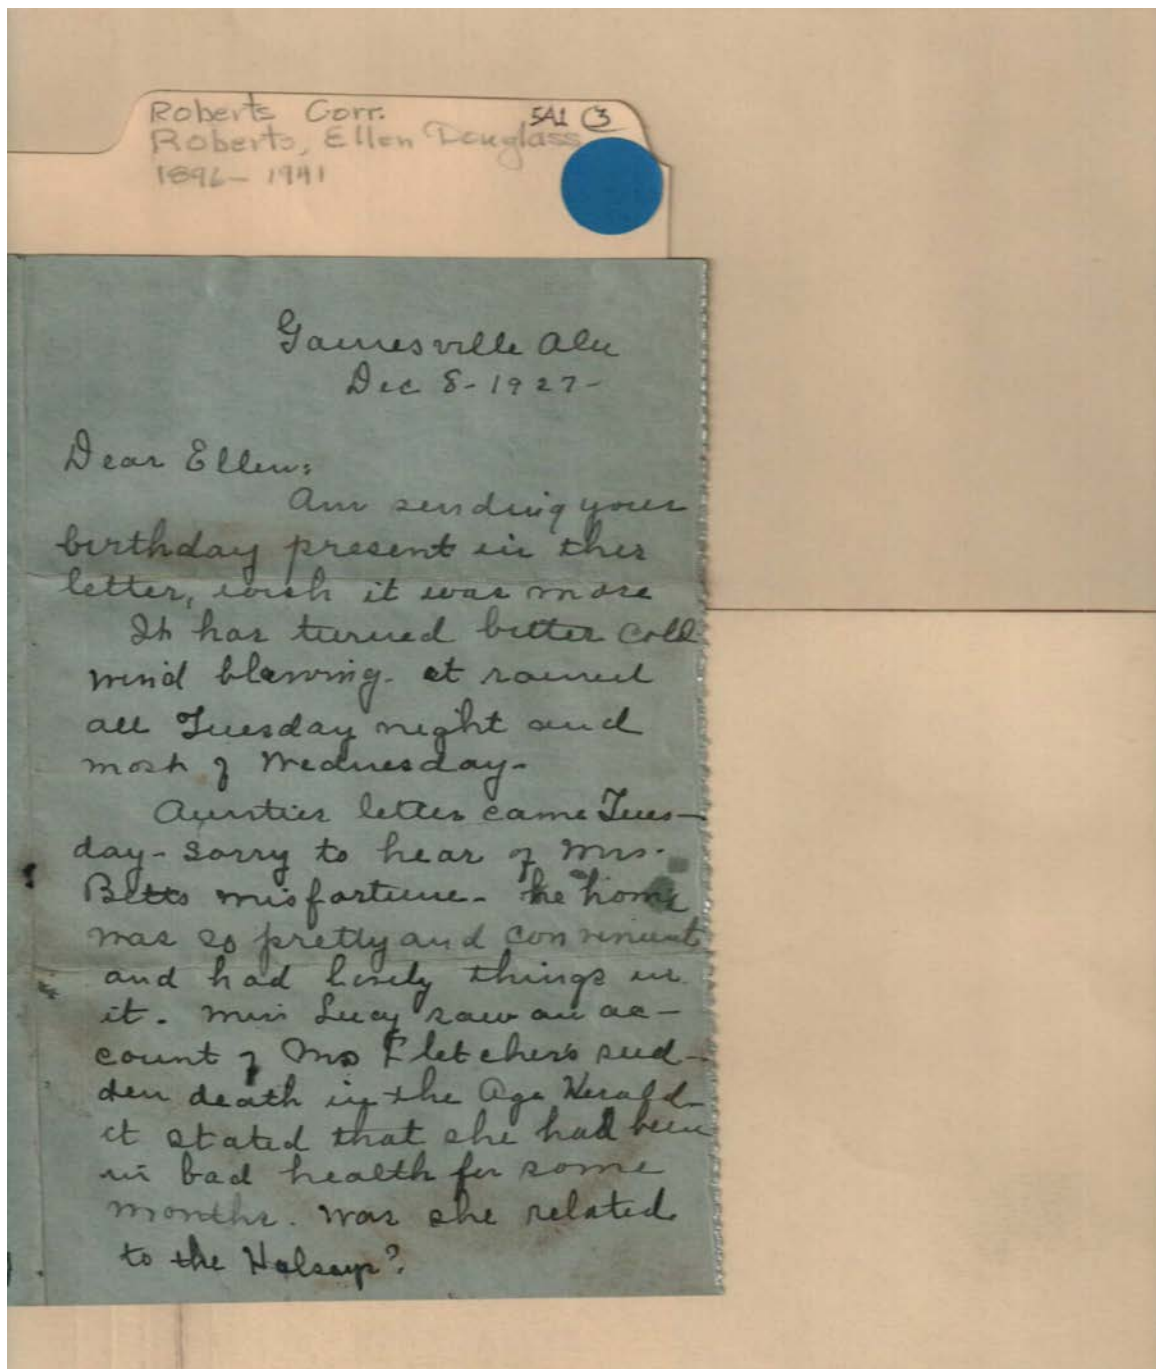 Roberts Corr. 5A1 (3
Roberts, Ellen Douglass
1896-1941
Gainesville Ala
Dec 8-1927-
Dear Ellen:
Am sending your
birthday present in this
letter, wish it was more
It has turned bitter cold
wind blowing. it rained
all Tuesday night and
most of Wednesday-
Aunties letter came Tues-
day- sorry to hear of Mrs.
Betts misfortune- the home
was so pretty and convinient
and had lovely things in
it. Miss Lucy saw an ac-
count of Mrs Fletcher's sud-
den death in the Age Herald-
it stated that she had been
in bad health for some
months. was she related
to the Halseys?